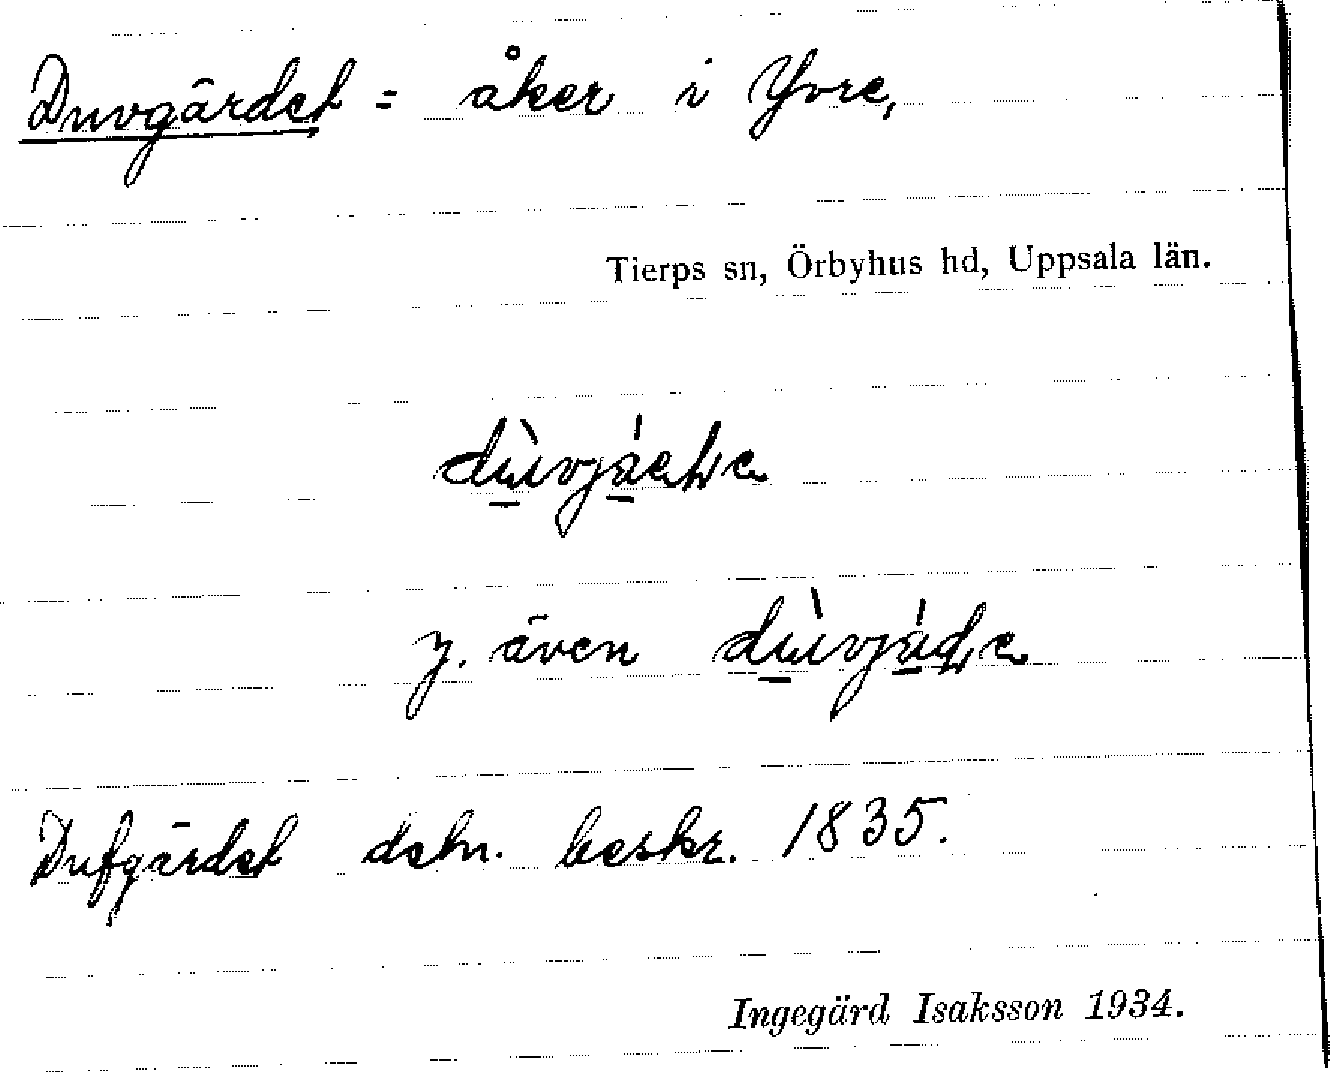 Duvgärdet = åker i Yvre,
Tierps sn, Örbyhus hd, Uppsala län.
y. även
Dufgärdet debn. beskr. 1835.
Ingegärd Isaksson 1934.